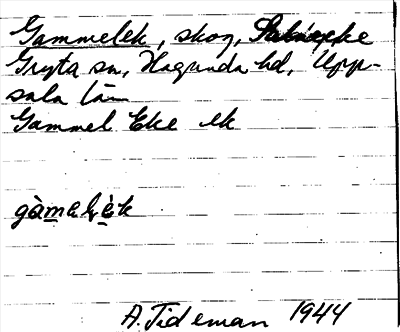 Gammelek, skog,
Gryta sn, Hagunda hd, Upp-
sala län
Gammel Eke ek
gàmelèk
A. Tideman 1944